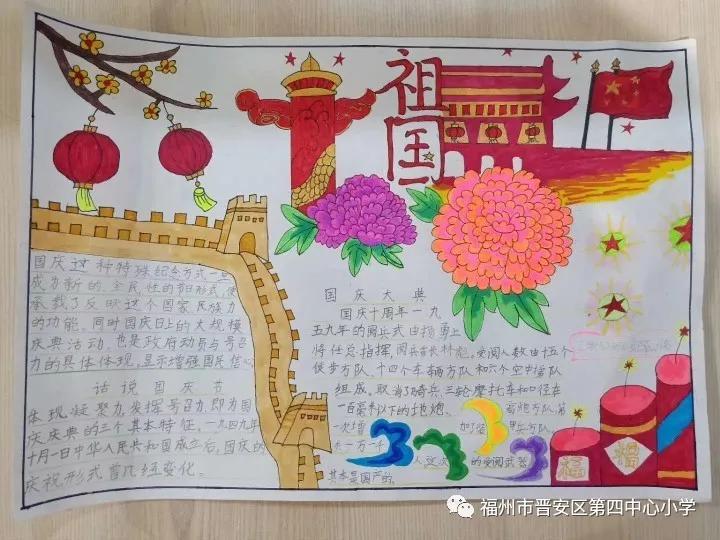 祖国
国庆这种特殊纪念方式一旦
成为新的、全民性的节日形式，便
承载了反映这个国家、民族力
的功能。同时国庆日上的大规模
庆典活动，也是政府动员与号召
力的具体体现，显示增强国民信心
话说国庆节
体现凝聚力，发挥号召力，即为国
庆庆典的三个基本特征。一九四九年
十月一日中华人民共和国成立后，国庆的
庆祝形式曾几经变化。
国庆大典
国庆十周年一九
五九年的阅兵式由杨勇上
将任总指挥，阅兵首长林彪。受阅人数由十五个
徒步方队、十四个车辆方队和六个空中梯队
组成。取消了骑兵、三轮摩托车和口径在
一百毫米以下的地炮、
第
一次增加了
一万一千
人这次的受阅武器
其本是国产的。
福
福
福州市晋安区第四中心小学